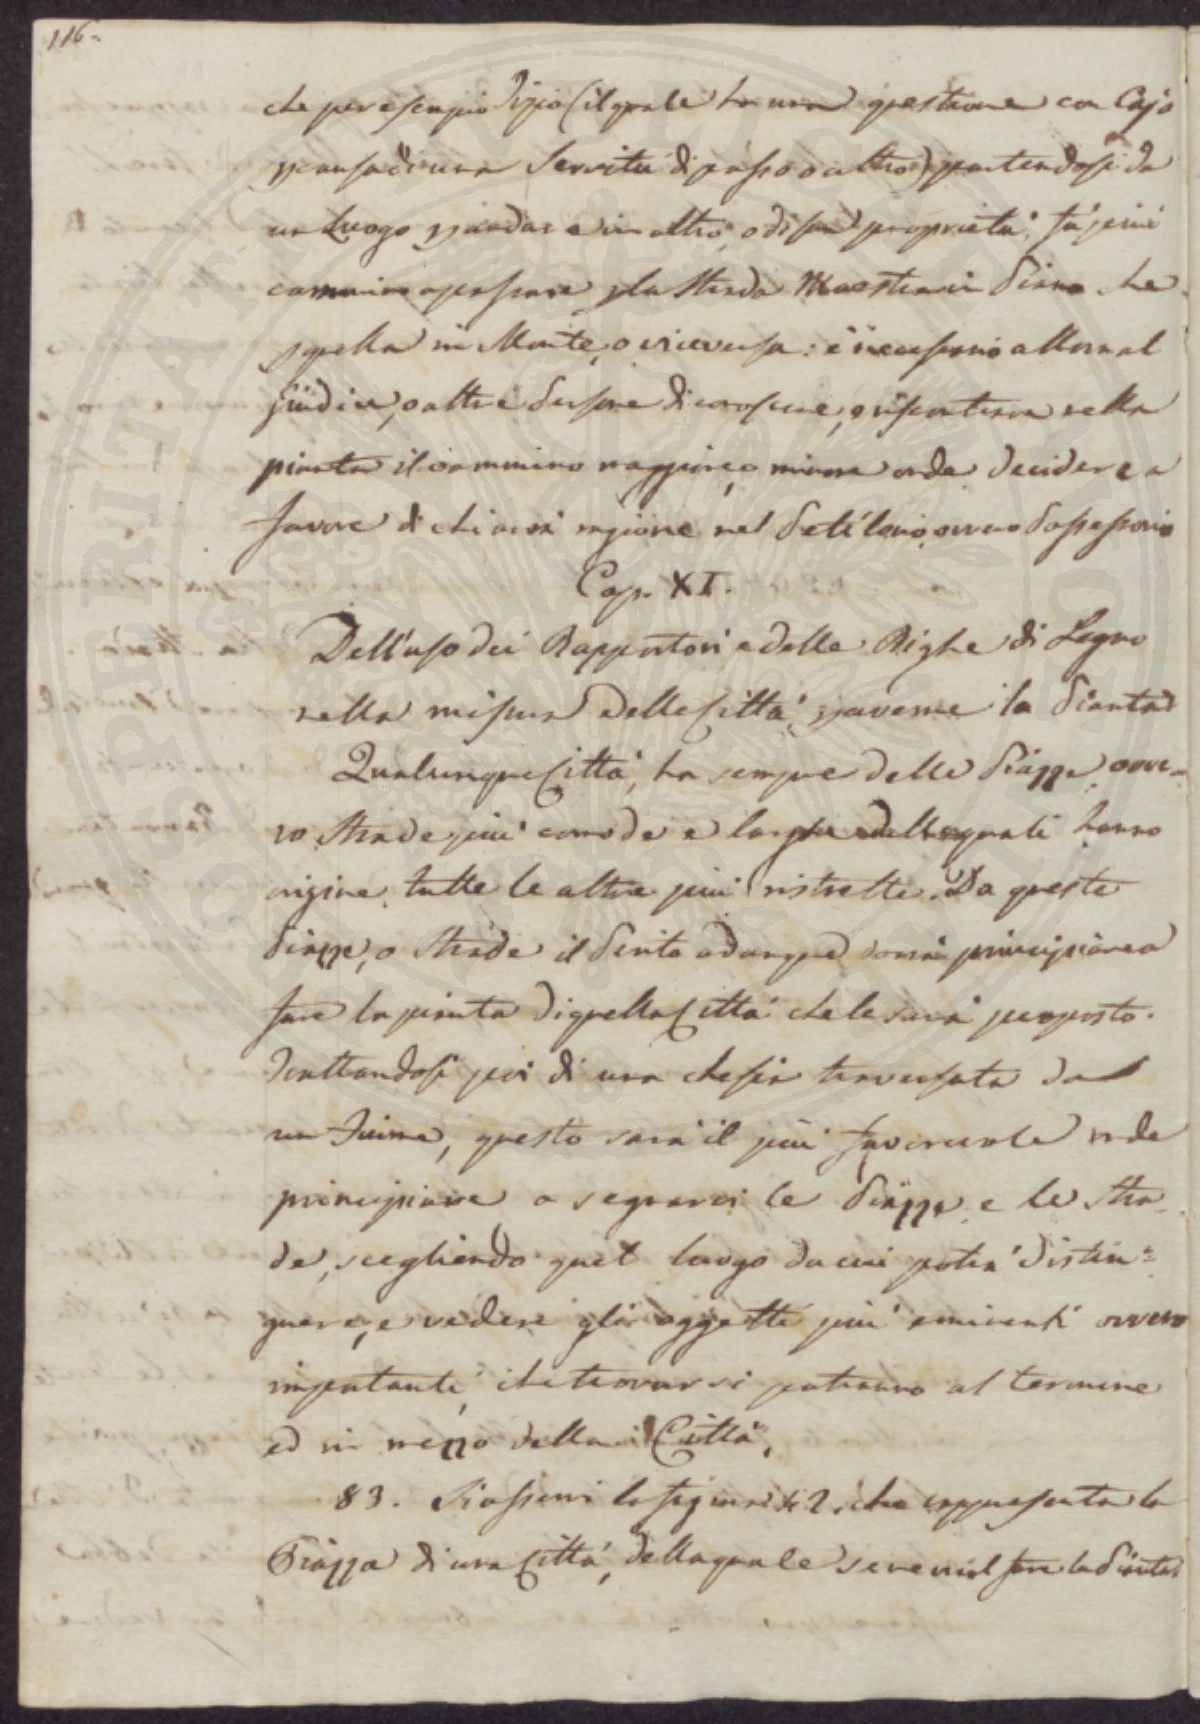 116.
che per esempio Tizio (il quale ha una questione con Cajo
p causa di una Servitù di passo o altro) partendosi da
un Luogo p andare in altro, o di sua proprietà, fà più
cammino a passare p la Strada Maestra in Piano che
p quella in Monte, o viceversa: è necessario allora al
Giudice, o altre Persone di conoscere, e riscontrare nella
pianta il cammino maggiore, o minore onde decidere a
favore di chi avrà ragione nel Petitorio, ovvero Possessorio
Cap. XI.
Dell'uso dei Rapportori e delle Righe di Legno
nella misura delle Città, p averne la Pianta
Qualunque Città, ha sempre delle Piazze, ovve=
ro Strade più comode e larghe dalle quali hanno
origine tutte le altre più ristrette. Da queste
Piazze, o Strade il Perito adunque dovrà principiare a
fare la pianta di quella Città che le sarà proposto.
Trattandosi poi di una che sia traversata da
un Fiume, questo sarà il più favorevole onde
principiare a segnarci le Piazze e le Stra=
de, scegliendo quel luogo da cui potrà distin=
guere, e vedere gli oggetti più eminenti ovvero
importanti, che trovarsi potranno al termine
ed in mezzo della Città.
83. Siasseni la figura che rappresenta la
Piazza di una Città, della quale se ne vuol fare la Pianta